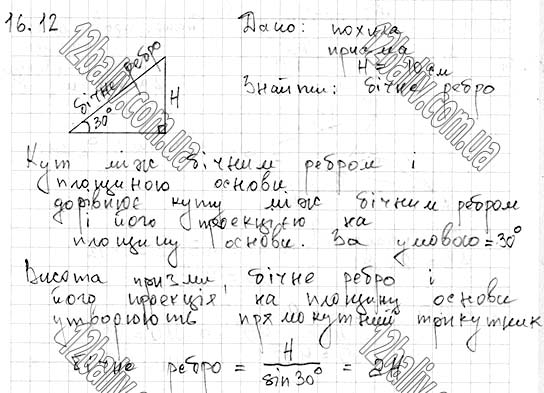 16.12
Дано: похила
призма
H = 10 см
Знайти: бічне ребро
бічне ребро
H
30°
Кут між бічним ребром і
площиною основи
дорівнює куту між бічним ребром
і його проекцією на
площину основи. За умовою = 30°
Висота призми, бічне ребро і
його проекція на площину основи
утворюють прямокутний трикутник
Бічне ребро = H / sin 30° = 2H
12baliv.com.ua
12baliv.com.ua
12baliv.com.ua
12baliv.com.ua